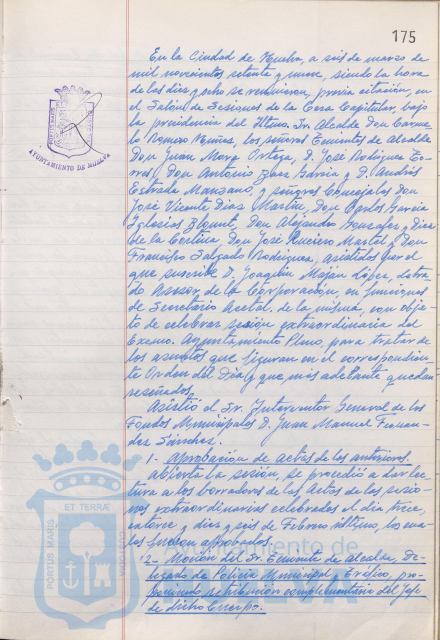 175
En la Ciudad de Huelva, a seis de marzo de
mil novecientos setenta y nueve, siendo la hora
de las diez y ocho se reunieron, previa citación, en el
Salón de Sesiones de la Casa Capitular bajo
la presidencia del Iltmo. Sr. Alcalde Don Carme-
lo Romero Núñez, los señores Tenientes de Alcalde
Don Juan Mora Ortega, D. José Rodríguez To-
rres, Don Antonio Báez García y D. Andrés
Estrada Manzano, y señores Concejales Don
José Vicente Díaz Martín, Don Carlos García
Iglesias Don Alejandro González y Díaz
de la Cortina, Don José Ruciero Martel y Don
Francisco Salgado Rodríguez, asistidos por el
que suscribe D. Joaquín López, Letra-
do Asesor de la Corporación, en funciones
de Secretario Acctal. de la misma, con obje-
to de celebrar sesión extraordinaria del
Excmo. Ayuntamiento Pleno, para tratar de
los asuntos que figuran en el correspondien-
te Orden del Día y que más adelante quedan
reseñados.
Asistió el Sr. Interventor General de los
Fondos Municipales D. Juan Manuel Fernan-
dez Sánchez.
1.- Aprobación de actas de las anteriores.
Abierta la sesión, se procedió a dar lec-
tura a los borradores de las Actas de las sesio-
nes extraordinarias celebradas el día trece,
catorce y diez y seis de Febrero último, los cua-
les fueron aprobados.
2.- Moción del Sr. Teniente de Alcalde, De-
legado de Policía Municipal y Tráfico, pro-
poniendo retribución complementaria del Jefe
de dicho Cuerpo.
AYUNTAMIENTO DE HUELVA
PORTUS MARIS
ET TERRAE
CUSTODIA
Ayuntamiento de
HUELVA